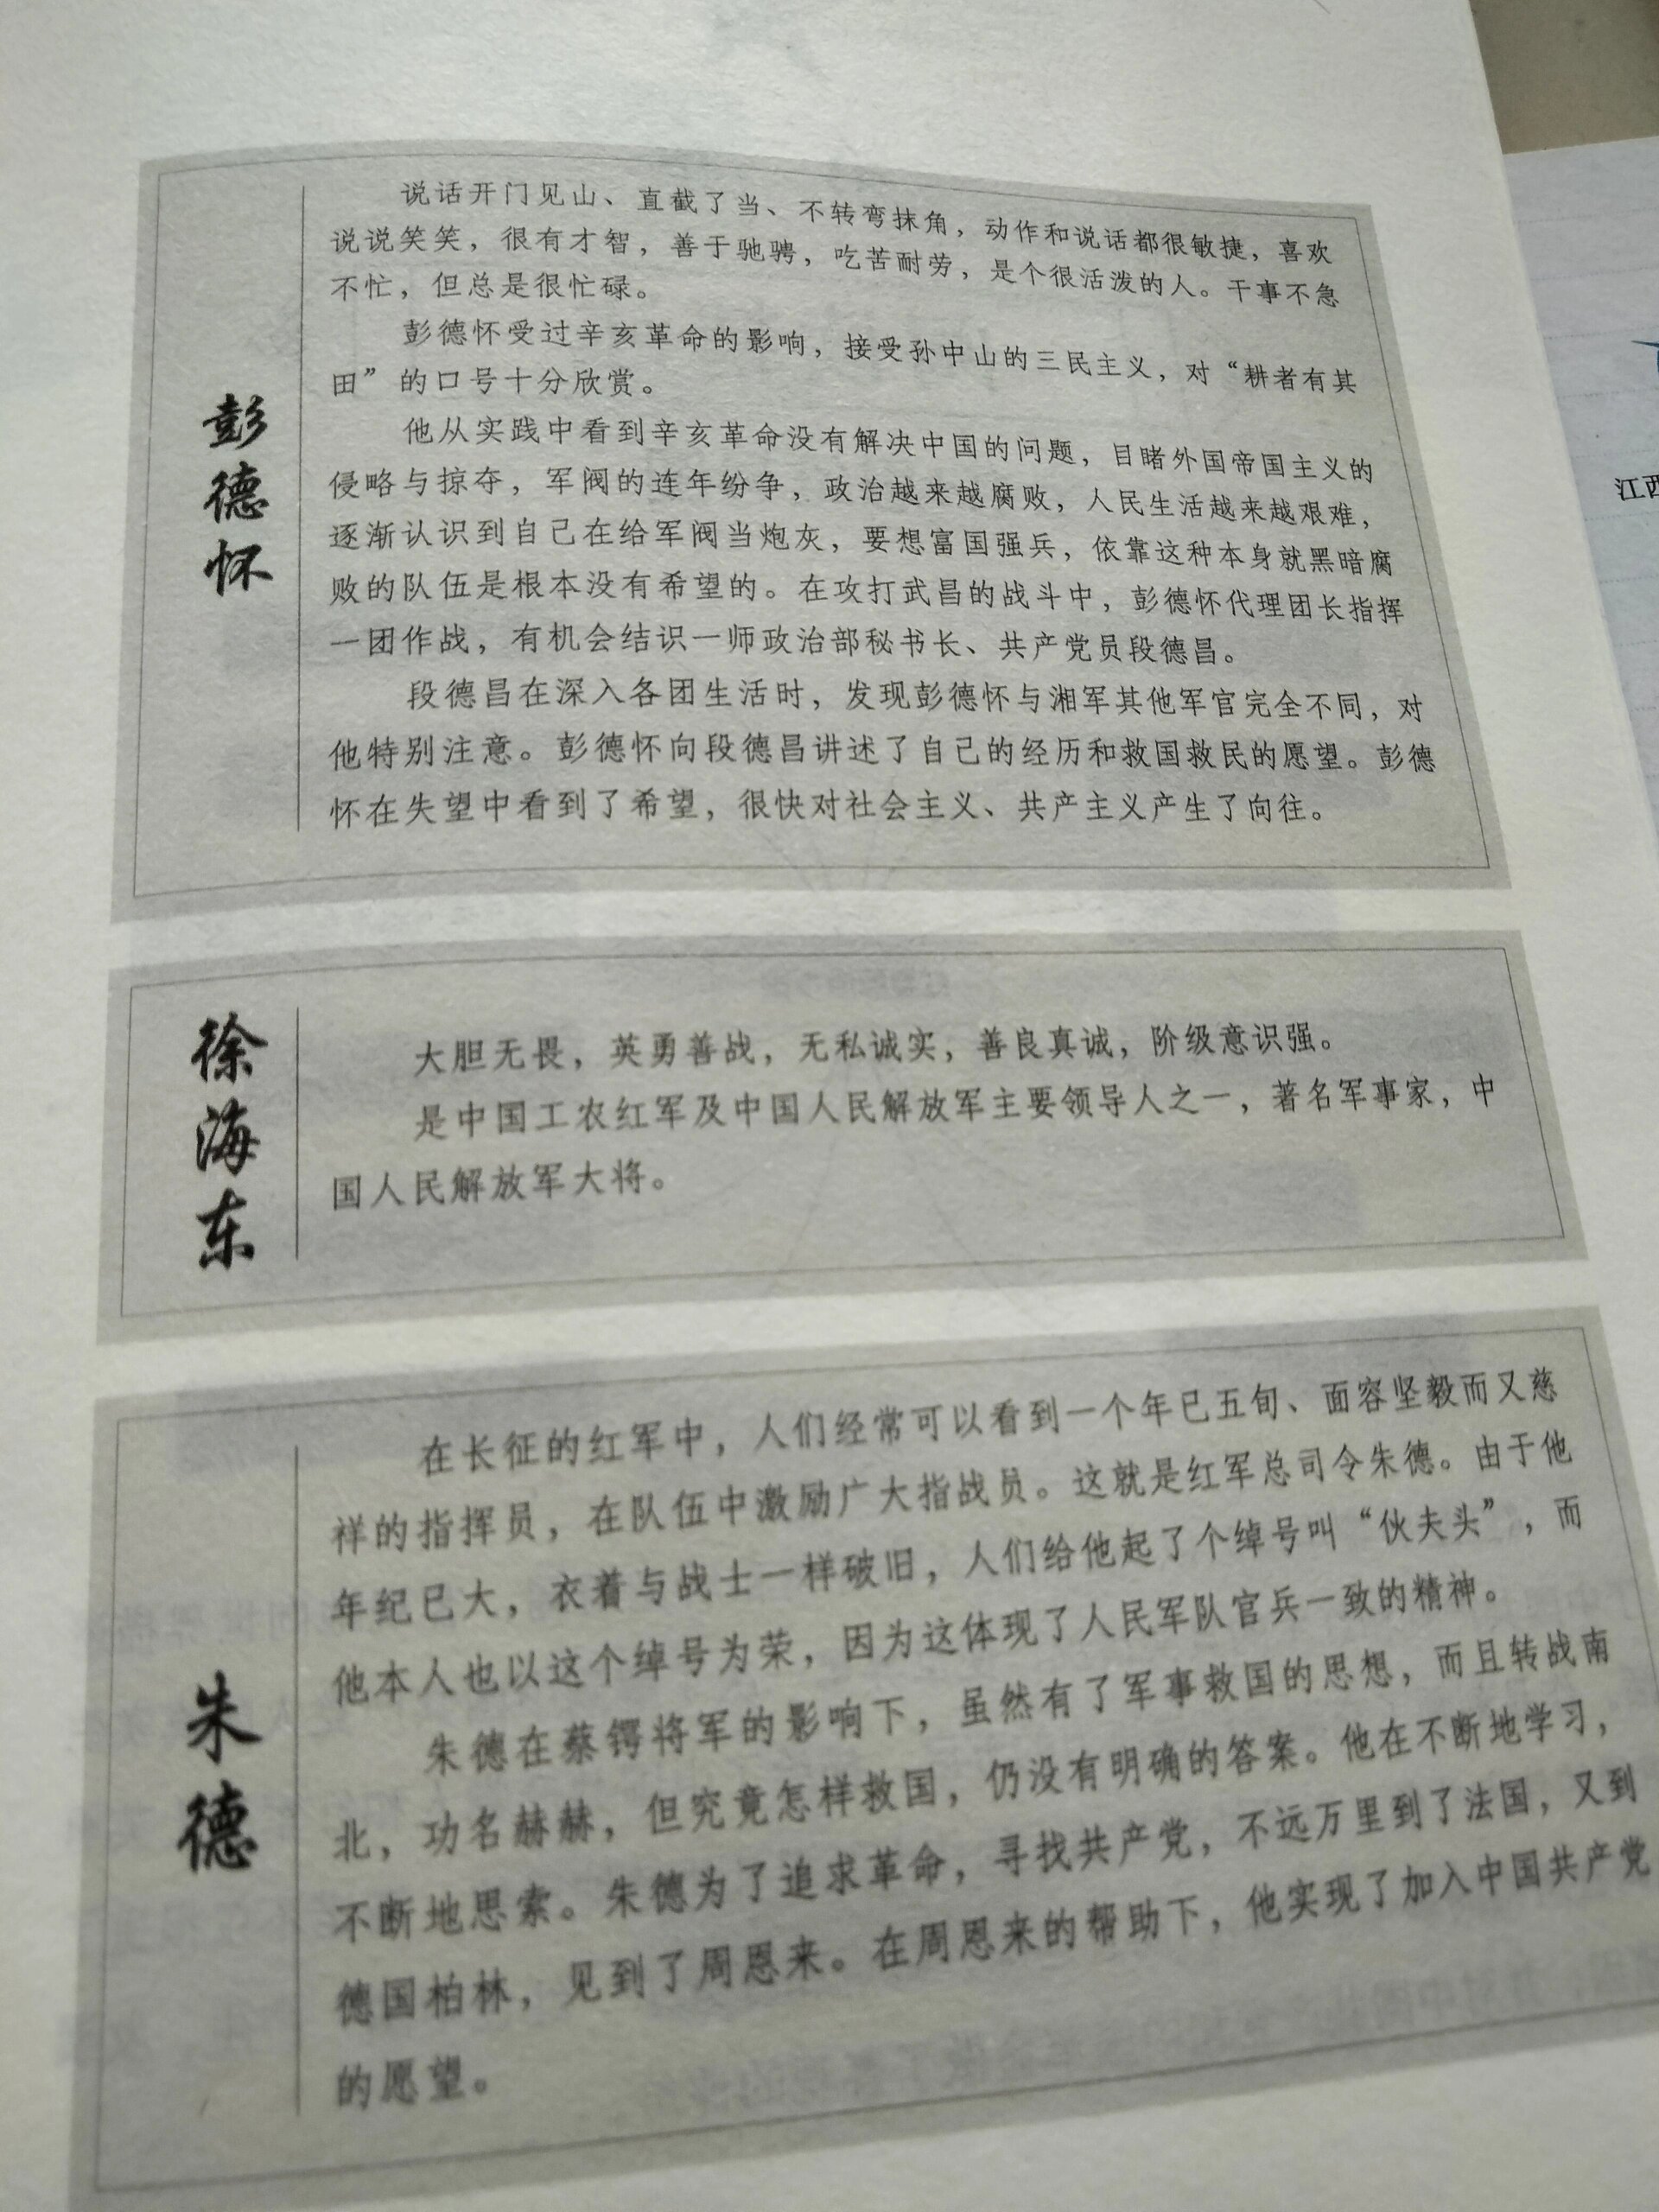 彭德怀
说话开门见山、直截了当、不转弯抹角，动作和说话都很敏捷，喜欢
说说笑笑，很有才智，善于驰骋，吃苦耐劳，是个很活泼的人。干事不急
不忙，但总是很忙碌。
彭德怀受过辛亥革命的影响，接受孙中山的三民主义，对“耕者有其
田”的口号十分欣赏。
他从实践中看到辛亥革命没有解决中国的问题，目睹外国帝国主义的
侵略与掠夺，军阀的连年纷争，政治越来越腐败，人民生活越来越艰难，
逐渐认识到自己在给军阀当炮灰，要想富国强兵，依靠这种本身就黑暗腐
败的队伍是根本没有希望的。在攻打武昌的战斗中，彭德怀代理团长指挥
一团作战，有机会结识一师政治部秘书长、共产党员段德昌。
段德昌在深入各团生活时，发现彭德怀与湘军其他军官完全不同，对
他特别注意。彭德怀向段德昌讲述了自己的经历和救国救民的愿望。彭德
怀在失望中看到了希望，很快对社会主义、共产主义产生了向往。
徐海东
大胆无畏，英勇善战，无私诚实，善良真诚，阶级意识强。
是中国工农红军及中国人民解放军主要领导人之一，著名军事家，中
国人民解放军大将。
朱德
在长征的红军中，人们经常可以看到一个年已五旬、面容坚毅而又慈
祥的指挥员，在队伍中激励广大指战员。这就是红军总司令朱德。由于他
年纪已大，衣着与战士一样破旧，人们给他起了个绰号叫“伙夫头”，而
他本人也以这个绰号为荣，因为这体现了人民军队官兵一致的精神。
朱德在蔡锷将军的影响下，虽然有了军事救国的思想，而且转战南
北，功名赫赫，但究竟怎样救国，仍没有明确的答案。他在不断地学习，
不断地思索。朱德为了追求革命，寻找共产党，不远万里到了法国，又到
德国柏林，见到了周恩来。在周恩来的帮助下，他实现了加入中国共产党
的愿望。
江西